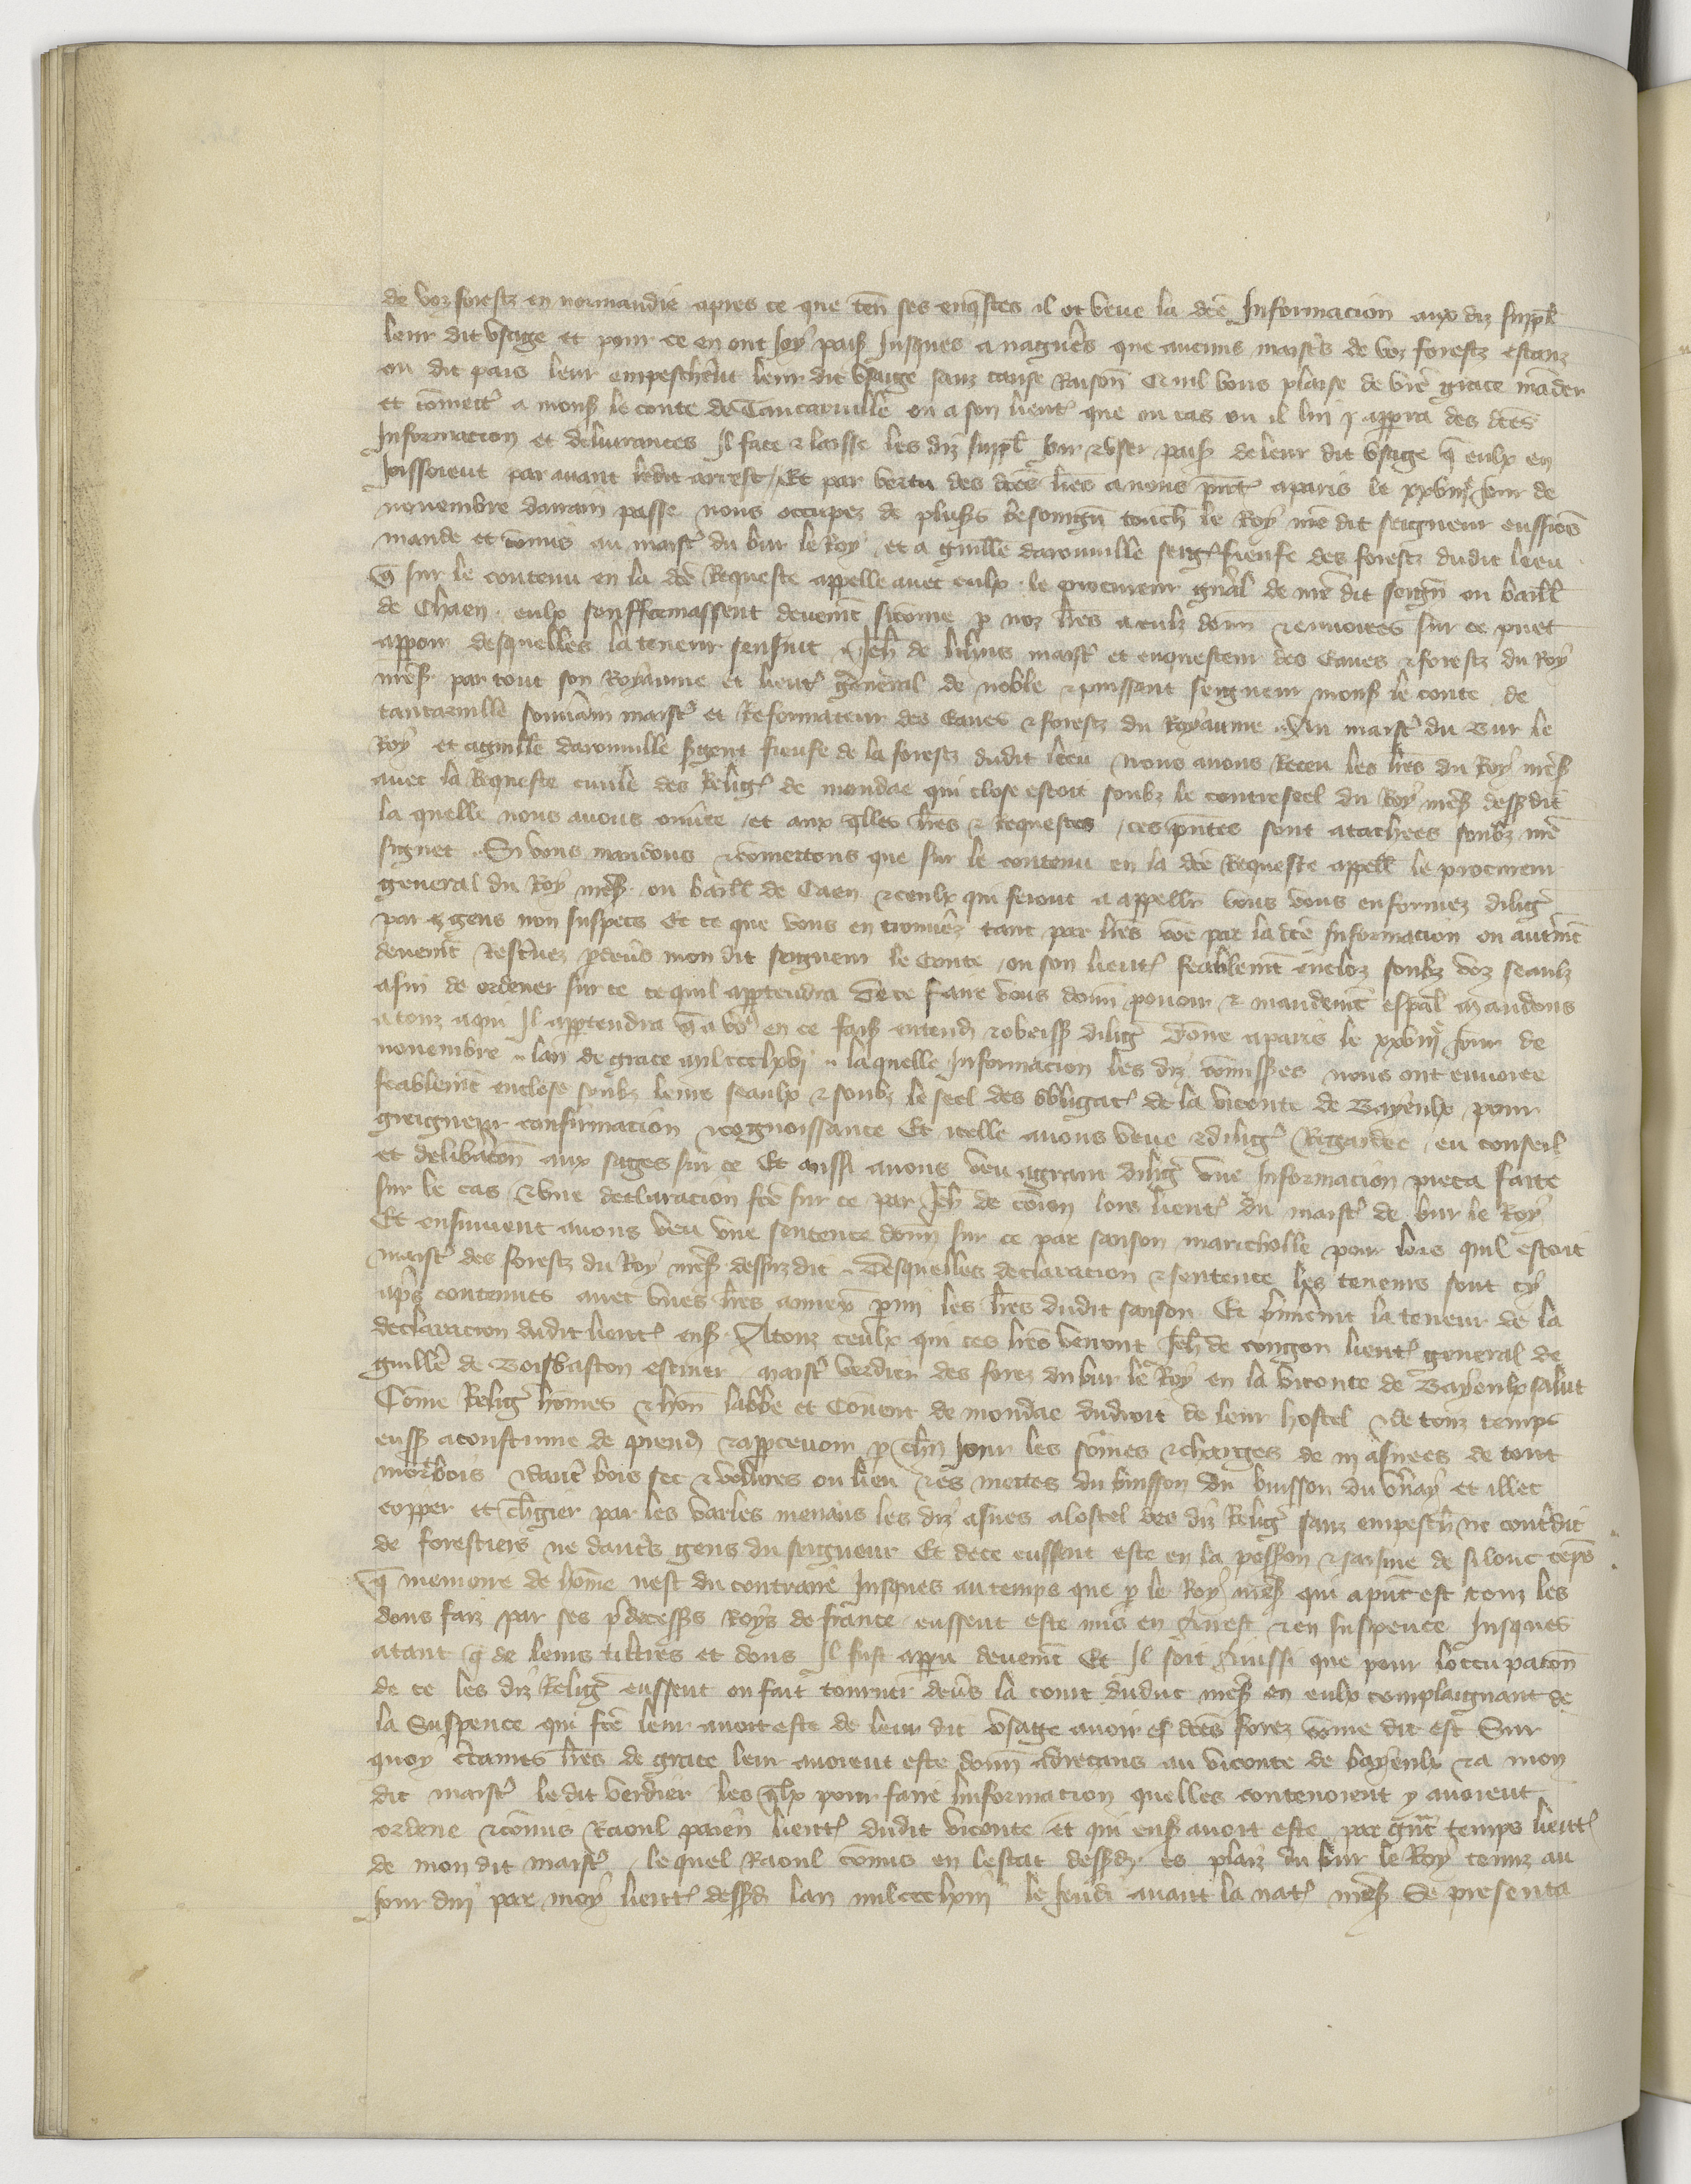 de voz forestz en normandie apres ce que ten ses enqstes il ot veue la dce Informacion aux diz suppl
leur dit usage et pour ce en ont Joy pais Jusques a nagures que aucuns maistrs de voz forestz estanz
ou dit pais leur empeschent leur dit usaige sanz cause Raison Quil vous plaise de vre grace mander
et comettr a mons le conte de Tancarville ou a son lieut que ou cas ou il lui apprra des dces
Informacion et delivrances Il face & laisse les diz suppl Joir & user pais de leur dit usage q eulx en
Joissoient par avant ledit arrest / Et par vertu des dces lres a nous pnt a paris le xxviij Jour de
novembre darrain passe nous occupez de pluss besoingn touch le Roy nre dit seigneur eussions
mande et comis au maistr du bur le Roy et a guille daronville serg fieufe des forestz dudit lieu
q sur le contenu en la dce Requeste appelle avec eulx le procureur gnal de nre dit seign ou baill
de Chaen eulx senfformassent deuemt sicome p noz lres a eulx donn & envoiees sur ce puet
apparoir desquelles la teneur sensuit Jeh de lilius maistr et enquesteur des Eaues & forestz du Roy
nres par tout son Royaume et lieut general de noble & puissant seigneur mons le conte de
tancarville souvain maistr et Reformateur des Eaues & forestz du Royaume Au maistr du Bur le
Roy et a guille daronville sgent fieufe de la forestz dudit lieu Nous avons Receu les lres du Roy nres
avec la Requeste civile des Relig de mondae qui close estoit soubz le contreseel du Roy nres dessdit
la quelle nous avons ouverte / et aux qlles lres & requestes / ces pntes sont atachees soubz nre
signet Si vous mandons & comettons que sur le contenu en la dce Requeste appell le procureur
general du Roy nres ou baill de Caen & ceulx qui seront a appeller vous vous enformez dilig
par gens non suspecs Et ce que vous en trouverez tant par lres come par la dce Informacion ou autmt
deuemt Rescrivez pdevers mon dit seigneur le Conte / ou son lieut feablemt encloz soubz voz seaulz
afin de ordener sur ce ce quil apptendra De ce faire vous donn povoir & mandemt espal Mandons
a touz a qui Il apptendra q a vo en ce fais entend & obeiss dilig Donne a paris le xxviij Jour de
novembre lan de grace mil ccclxvj laquelle Informacion les diz comisses nous ont envoiee
feablemt enclose soubz leurs seaulx & soubz le seel des obligat de la viconte de Bayeulx pour
greigneur confirmacion & cognoissance Et icelle avons veue & dilig Regardee eu conseil
et delibacon aux sages sur ce Et aussi avons veu a grant dilig une Informacion pieca faite
sur le cas & une declaracion fce sur ce par Jeh de coion lors lieut du maistr de bur le Roy
Et ensuivent avons veu une sentence donn sur ce par sanson maricholle pour lors quil estoit
maistr des forestz du Roy nres dessuzdit Desquelles declaracion & sentence les teneurs sont cy
aps contenues avec unes lres annex parmi les lres dudit sanson Et primeint la teneur de la
declaracion dudit lieut ens A touz ceulx qui ces lres verront Jeh de congon lieut general de
guille de Boisbaston escuier Maistr verdier des forez du bur le Roy en la viconte de Bayeulx salut
Come Relig homes & hon labbe et Couvent de mondae du droit de leur hostel & de touz temps
euss acoustume de prendr & appcevoir p chn Jour les somes & charges de iii asnees de tout
mortbois & daut bois sec & volures ou lieu & es mettes du buisson du buisson du vnay et illec
copper et chgier par les varles menans les diz asnes a lostel des diz Relig sanz empesch ne contdit
de forestiers ne dautrs gens du seigneur Et de ce eussent este en la possion & saisine de si lonc temps
q memoire de home nest du contraire Jusques au temps que p le Roy nres qui a pnt est touz les
dons faiz par ses pdecesses Roys de france eussent este mis en Arrest & en suspence Jusques
a tant q de leurs tiltres et dons Il fust appu deuemt Et Il soit Ainssi que pour loccupacon
de ce les diz Relig eussent ou fait tourner devers la court du duc nres en eulx complaignant de
la Suspence qui fce leur avoit este de leur dit usage avoir es dces forez come dit est Sur
quoy ctaines lres de grace leur avoient este donn adrecans au viconte de bayeulx & a mon
dit maistr ledit verdier les qlx pour faire linformacion quelles contenoient y avoient
ordene & comis Raoul parein lieut dudit viconte et qui ens avoit este par grat temps lieut
de mon dit maistr lequel Raoul comis en lestat dessd es plaiz du bur le Roy tenuz au
Jour dui par moy lieut dessd lan mil ccclxiii le Jeudi avant la nat nres Se presenta